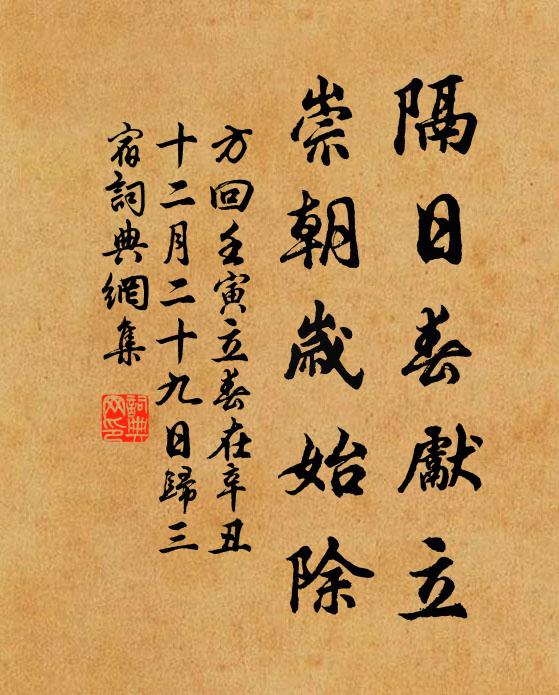 隔日春獻立
崇朝歲始除
方回壬寅立春在辛丑
十二月二十九日歸三
宿詞典網集
詞典
网印